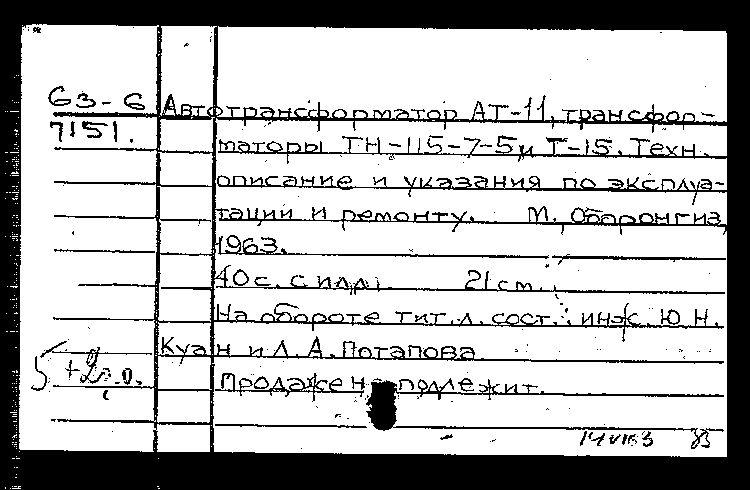 63-6 Автотрансформатор АТ-11, трансфор-
7151. маторы ТН-115-7-5 и Т-15. Техн.
описание и указания по эксплуа-
тации и ремонту. М., Оборонгиз,
1963.
40 с. с илл. 21 см.
На обороте тит. л. сост.: инж. Ю. Н.
Куан и Л. А. Потапова
5 +2 Продаже не подлежит.
14 VI 63